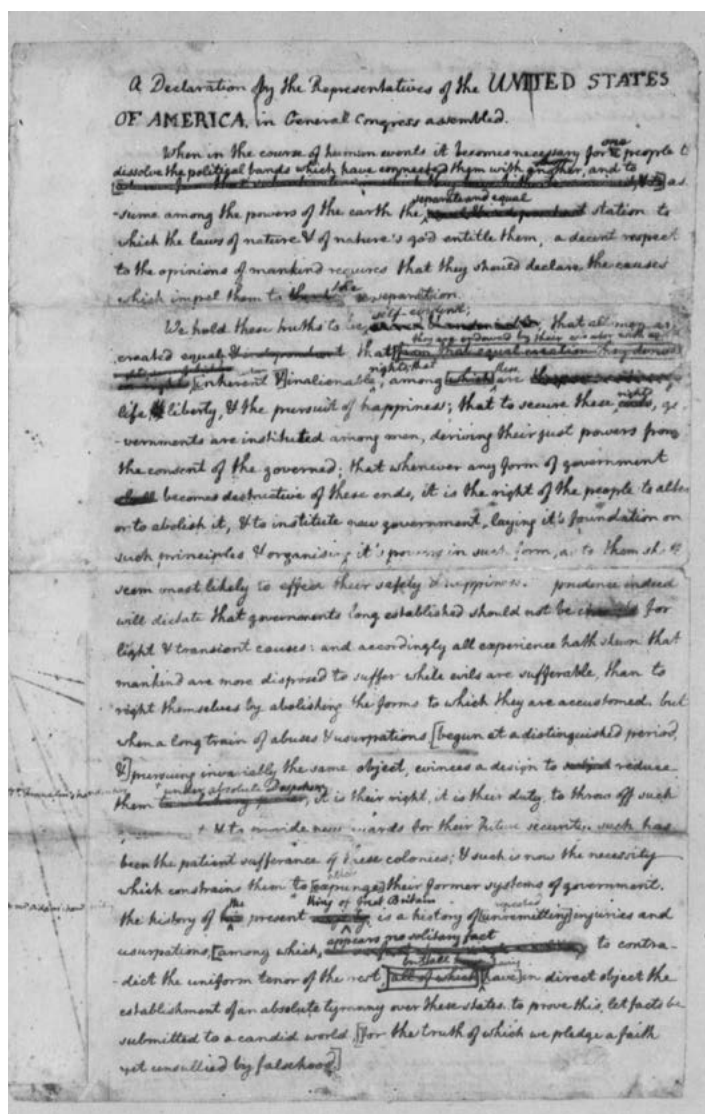 A Declaration by the Representatives of the UNITED STATES
OF AMERICA, in General Congress assembled.
When in the course of human events it becomes necessary for one people to
dissolve the political bands which have connected them with another, and to
as
-sume among the powers of the earth the separate and equal station to
which the laws of nature & of nature's god entitle them, a decent respect
to the opinions of mankind requires that they should declare the causes
which impel them to the separation.
We hold these truths to be self-evident; that all men are
created equal that they are endowed by their creator with
[from that equal creation they derive
rights; that
[inherent &] inalienable among [which] these are
life, & liberty, & the pursuit of happiness; that to secure these rights, go
-vernments are instituted among men, deriving their just powers from
the consent of the governed; that whenever any form of government
becomes destructive of these ends, it is the right of the people to alter
or to abolish it, & to institute new government, laying it's foundation on
such principles & organising it's powers in such form, as to them sh
seem most likely to effect their safety & happiness. prudence indeed
will dictate that governments long established should not be for
light & transient causes: and accordingly all experience hath shewn that
mankind are more disposed to suffer while evils are sufferable, than to
right themselves by abolishing the forms to which they are accustomed. but
when a long train of abuses & usurpations [begun at a distinguished period,
&] pursuing invariably the same object, evinces a design to reduce
them under absolute Despotism, it is their right, it is their duty, to throw off such
& to provide new guards for their future security. such has
been the patient sufferance of these colonies; & such is now the necessity
which constrains them to [expunge] alter their former systems of government.
the history of the present King of Great Britain is a history of [unremitting] repeated injuries and
usurpations, [among which, appears no solitary fact to contra-
-dict the uniform tenor of the rest, but all [all of which] [have] in direct object the
establishment of an absolute tyranny over these states. to prove this, let facts be
submitted to a candid world, [for the truth of which we pledge a faith
yet unsullied by falsehood]